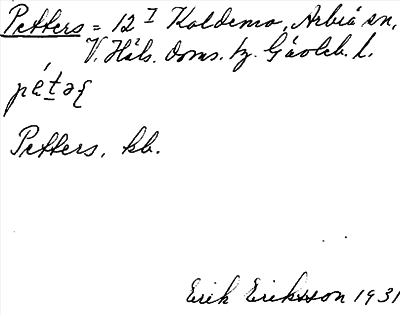 Petters = 12 I Koldemo, Arbrå sn,
V. Häls. doms. hz. Gävleb. l.
pétəʃ
Petters, kb.
Erik Eriksson 1931